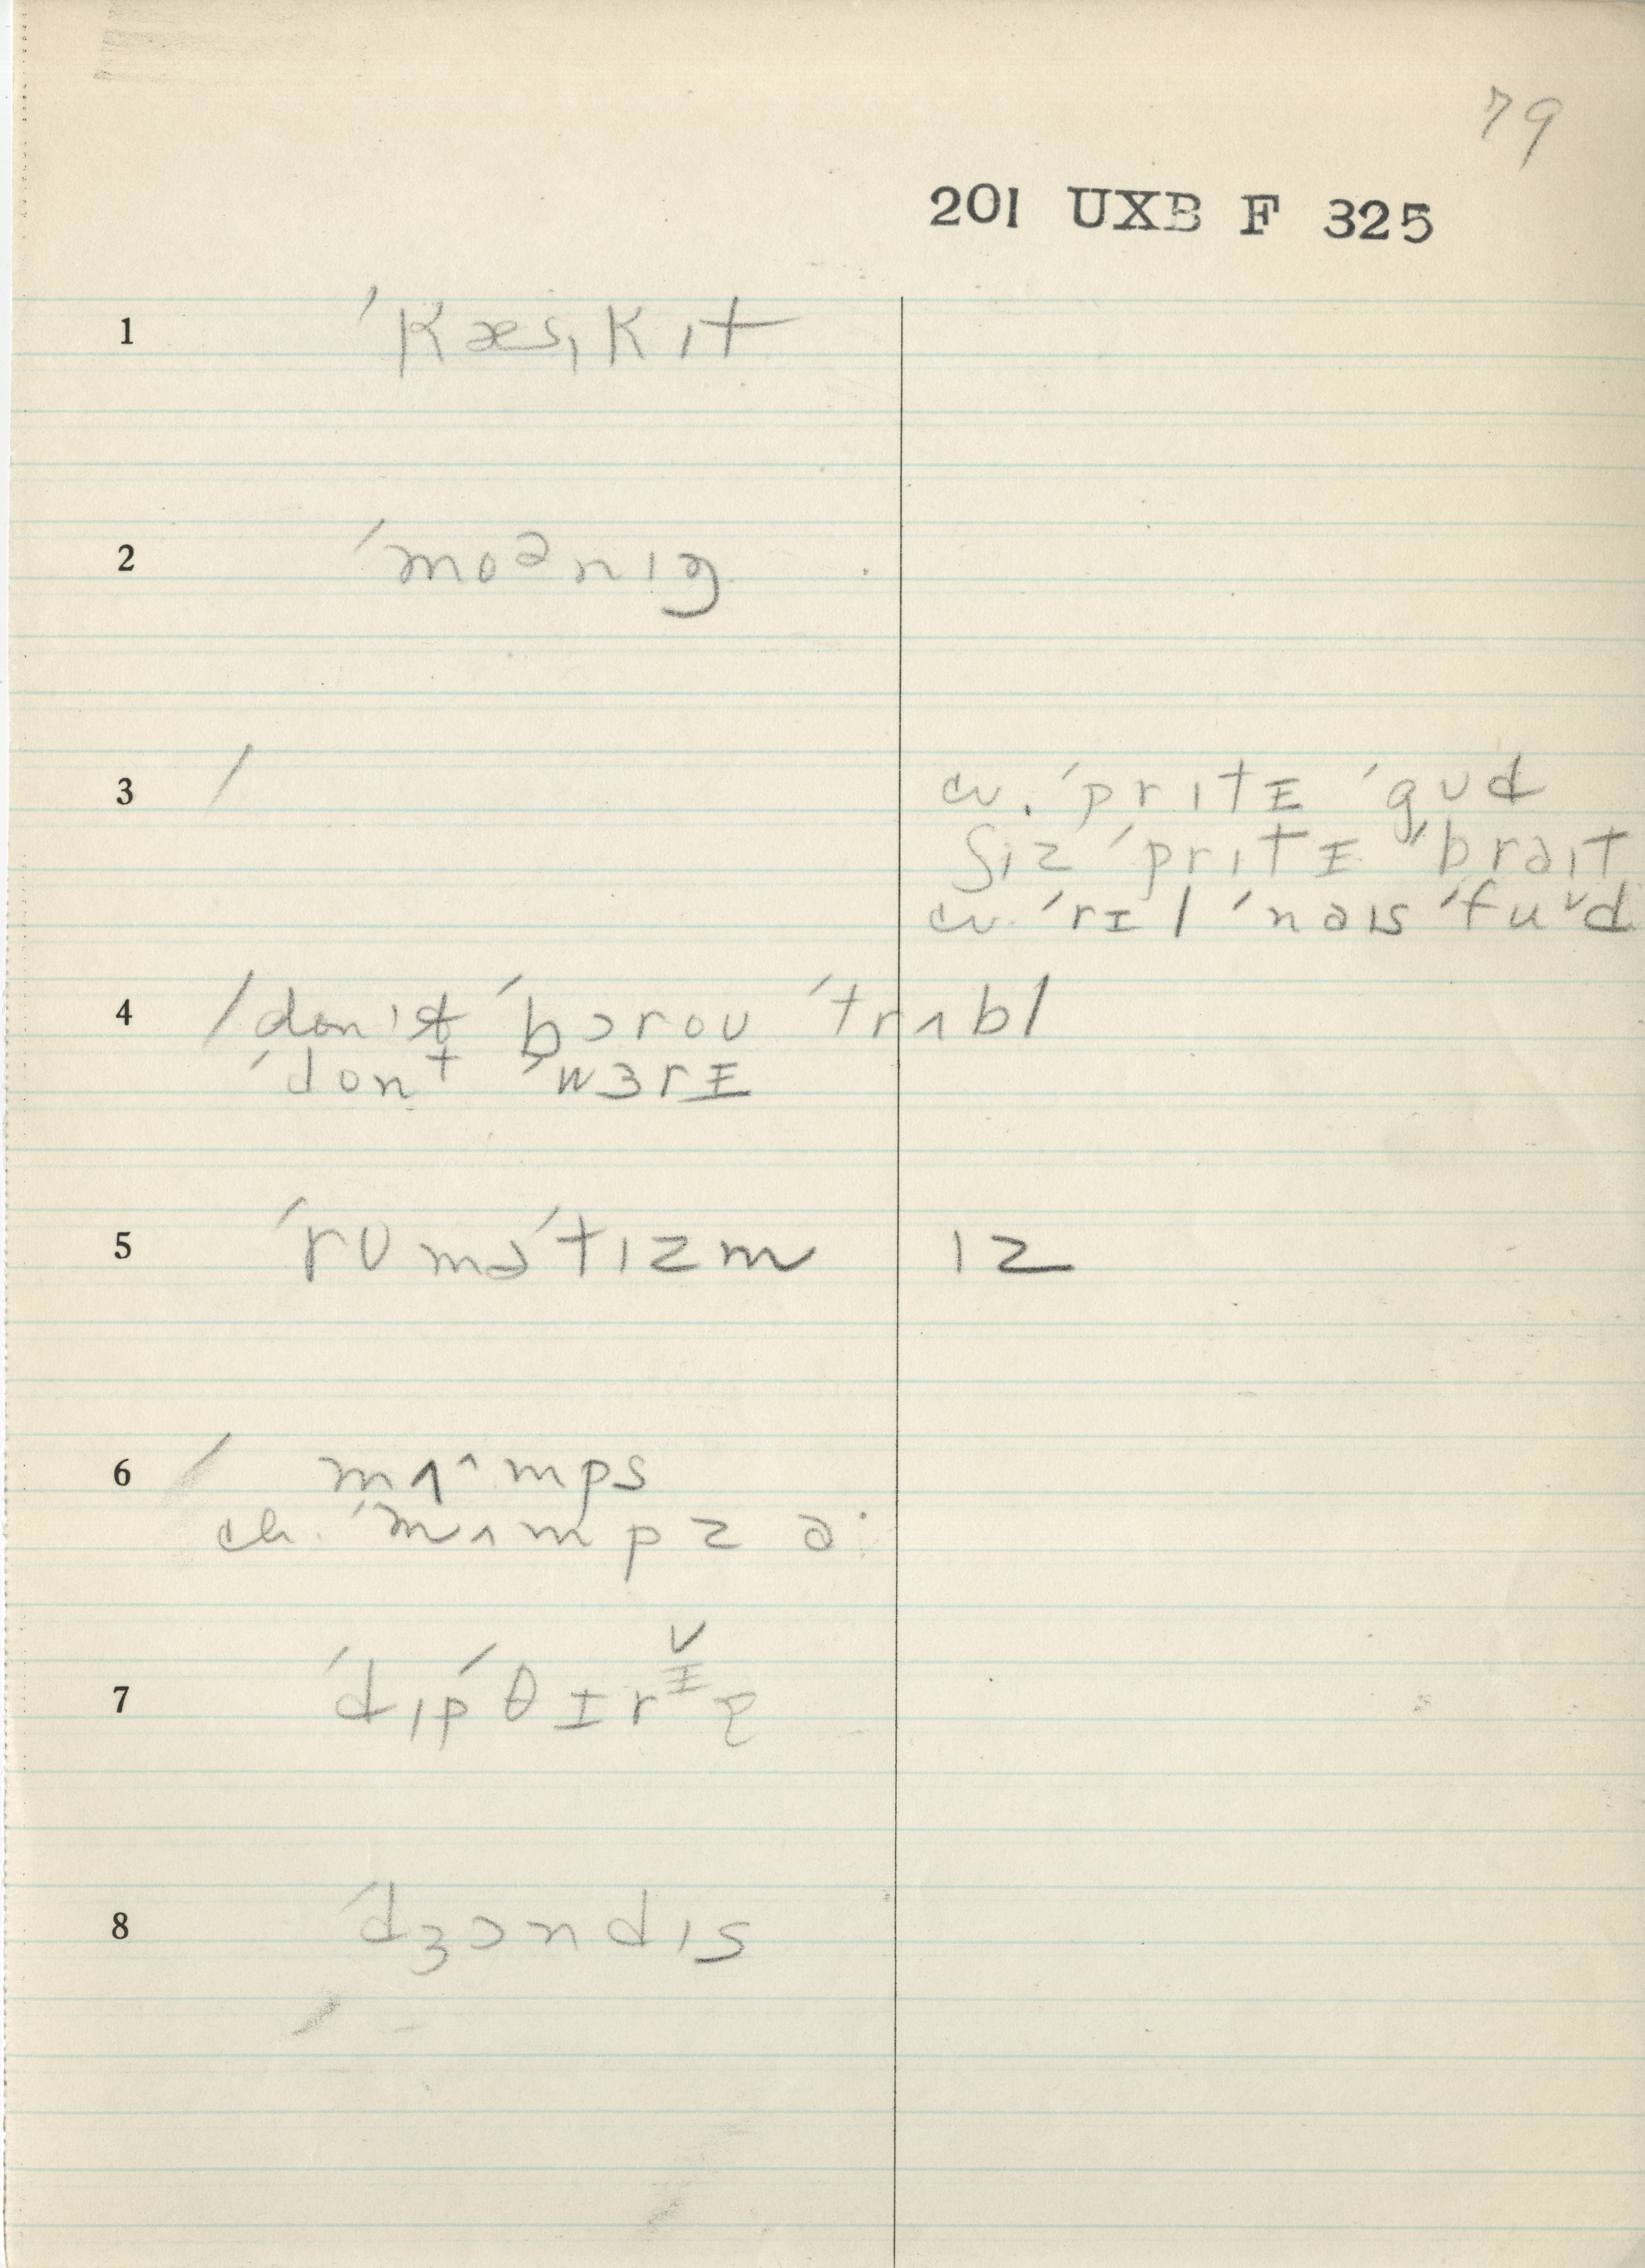 79
201 UXB F 325
1 ˈkæsˌkɪt
2 ˈmoᵊnɪŋ
3 / cv. ˈprɪtɪ ˈgʊd
ʃiz ˈprɪtɪ ˈbraɪt
cv. ˈril ˈnaɪs ˈfuᵛd
4 / don't ˈbɔroʊ ˈtrʌbl
ˈdont ˈwɜrɪ
5 ˈrʊməˈtɪzm ɪz
6 / mʌ^mps
ch. ˈmʌmpz ə·
7 ˈdɪpˈθɪrɪə
8 ˈdʒɔndɪs